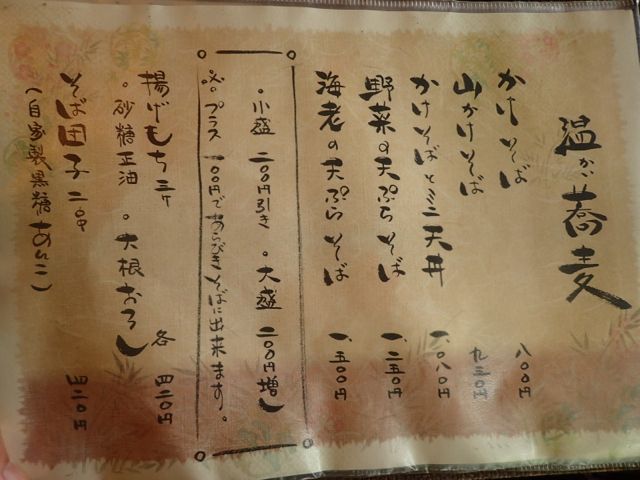 温かい蕎麦
かけそば 八〇〇円
山かけそば 九三〇円
かけそばとミニ天丼 一、〇八〇円
野菜の天ぷらそば 一、二五〇円
海老の天ぷらそば 一、五〇〇円
・小盛 二〇〇円引き ・大盛 二〇〇円増し
※プラス 一〇〇円であらびきそばに出来ます。
揚げもち三ヶ
・砂糖正油 ・大根おろし 各 四二〇円
そば団子 二ケ 四二〇円
(自家製黒糖あんこ)